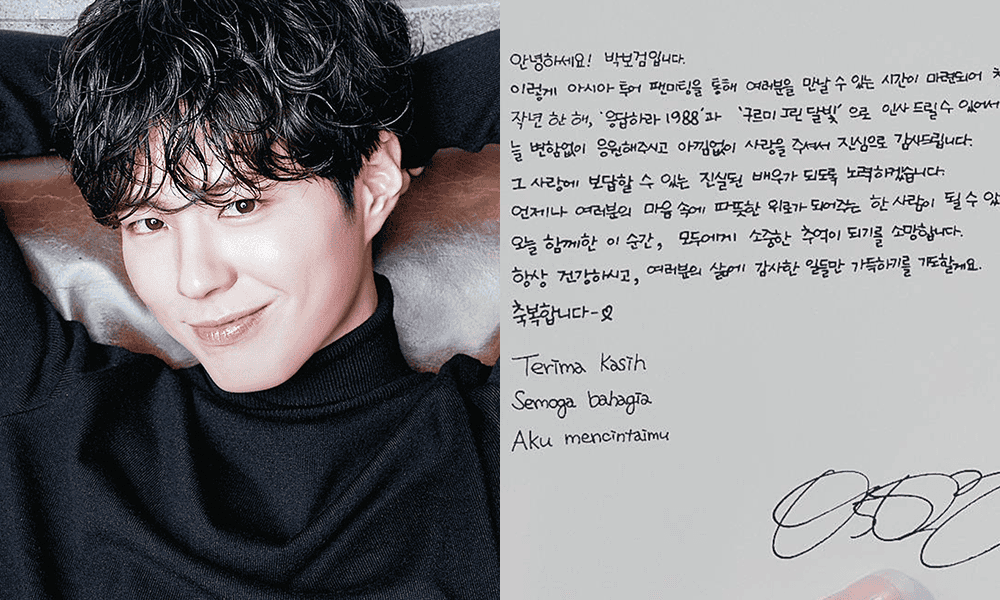 안녕하세요! 박보검입니다.
이렇게 아시아 투어 팬미팅을 통해 여러분을 만날 수 있는 시간이 마련되어
작년 한 해, '응답하라 1988'과 '구르미 그린 달빛'으로 인사 드릴 수 있어서
늘 변함없이 응원해주시고 아낌없이 사랑을 주셔서 진심으로 감사드립니다.
그 사랑에 보답할 수 있는 진실된 배우가 되도록 노력하겠습니다.
언제나 여러분의 마음 속에 따뜻한 위로가 되어주는 한 사람이 될 수
오늘 함께한 이 순간, 모두에게 소중한 추억이 되기를 소망합니다.
항상 건강하시고, 여러분의 삶에 감사한 일들만 가득하기를 기도할게요.
축복합니다~
Terima kasih
Semoga bahagia
Aku mencintaimu